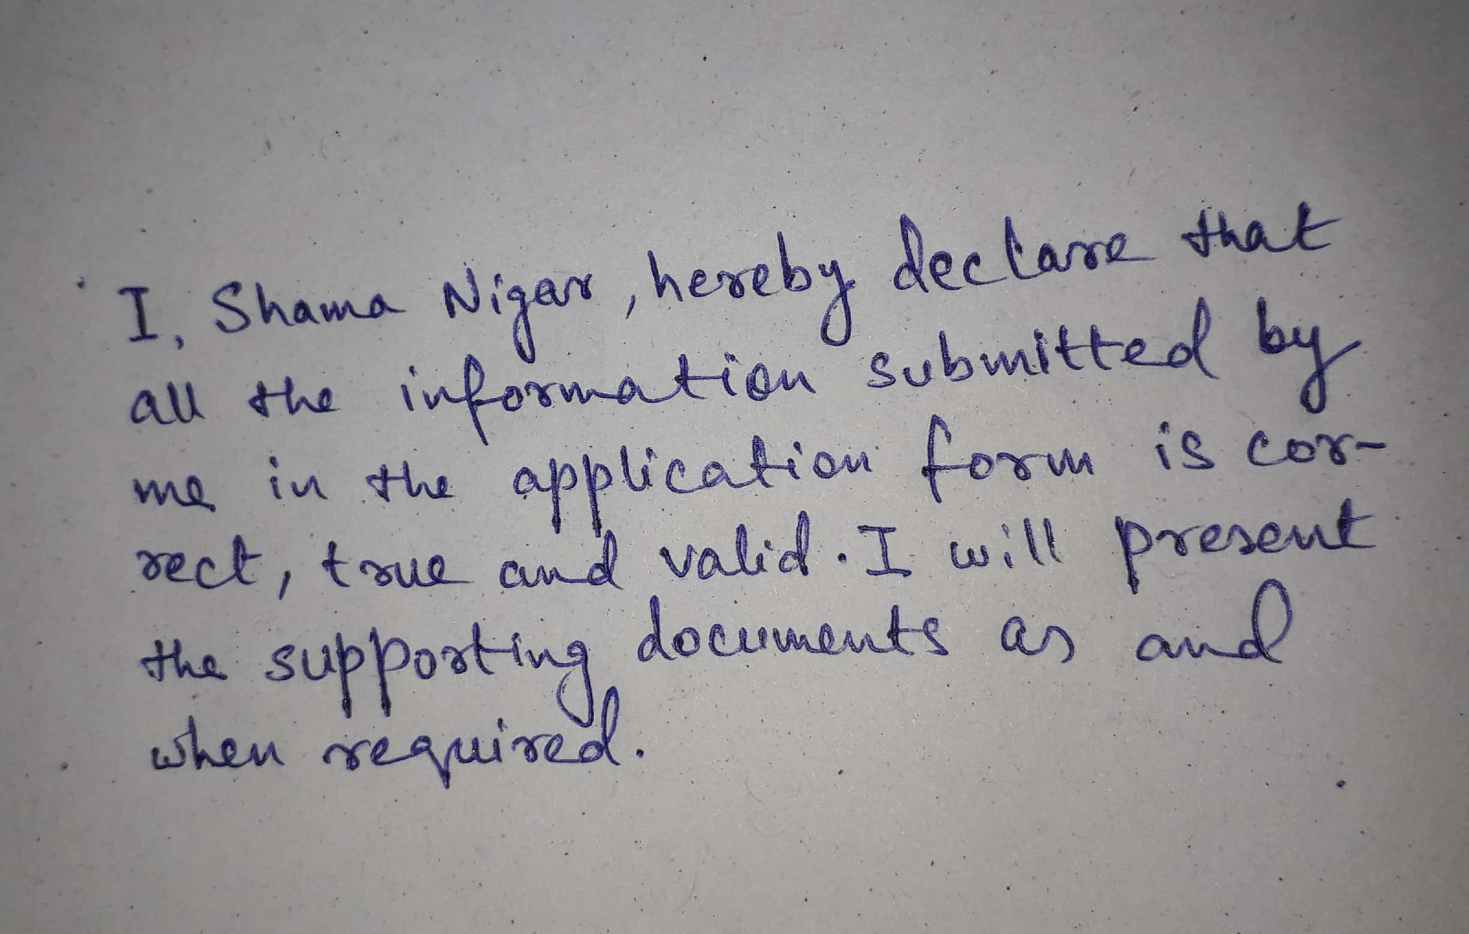 I, Shama Nigar, hereby declare that
all the information submitted by
me in the application form is cor-
rect, true and valid. I will present
the supporting documents as and
when required.